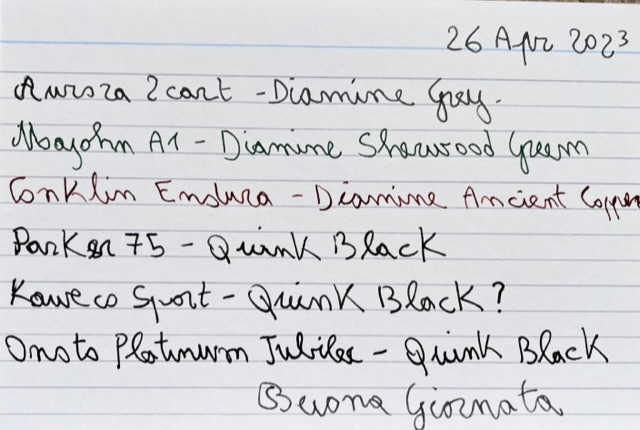 26 Apr 2023
Aurora 2cart - Diamine Grey.
Majohn A1 - Diamine Sherwood Green
Conklin Endura - Diamine Ancient Copper
Parker 75 - Quink Black
Kaweco Sport - Quink Black?
Onoto Platinum Jubilee - Quink Black
Buona Giornata